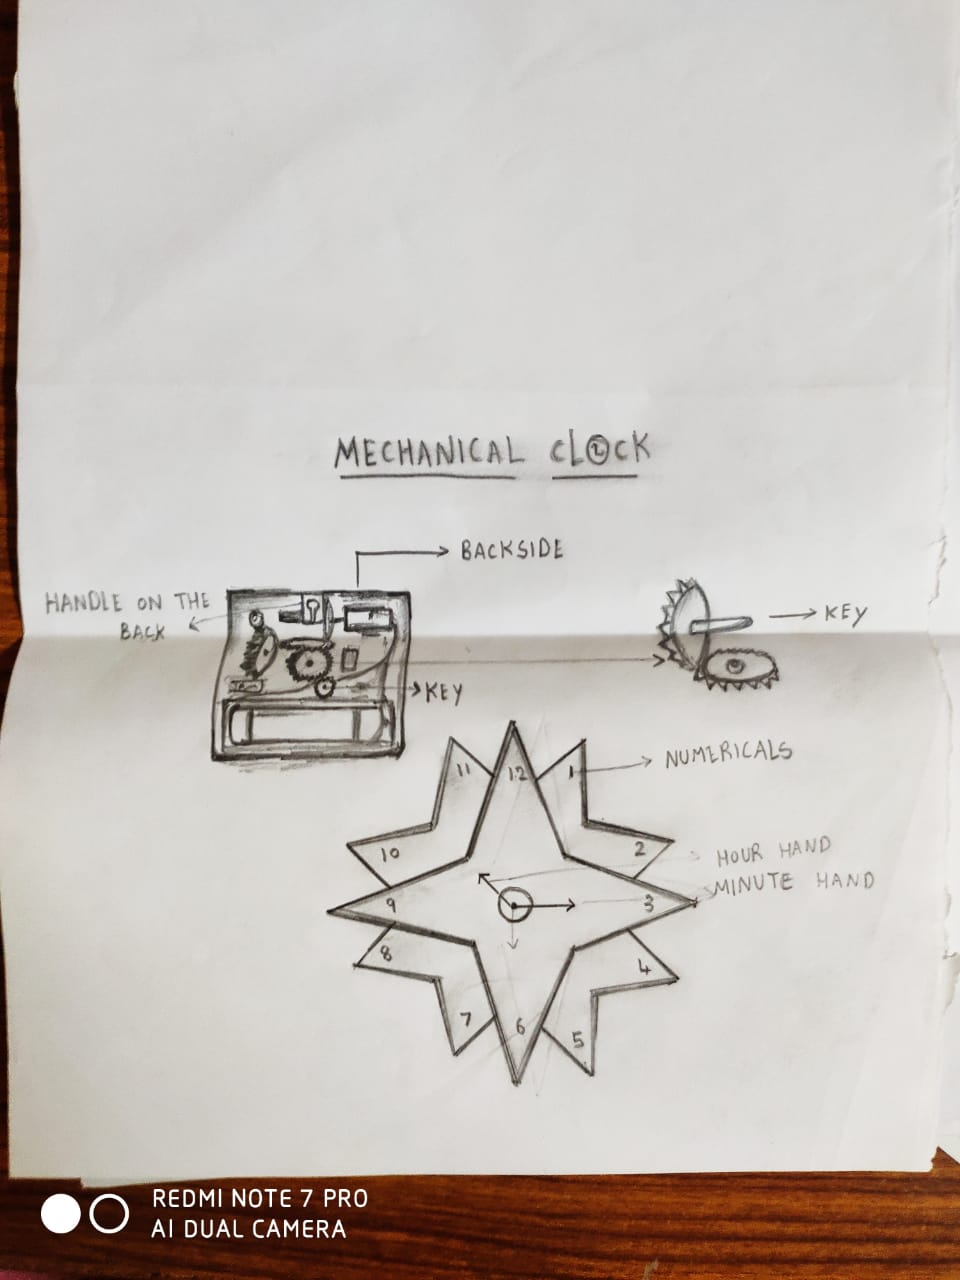 MECHANICAL CLOCK
BACKSIDE
HANDLE ON THE
BACK
KEY
KEY
NUMERICALS
HOUR HAND
MINUTE HAND
12
1
2
3
4
5
6
7
8
9
10
11
REDMI NOTE 7 PRO
AI DUAL CAMERA